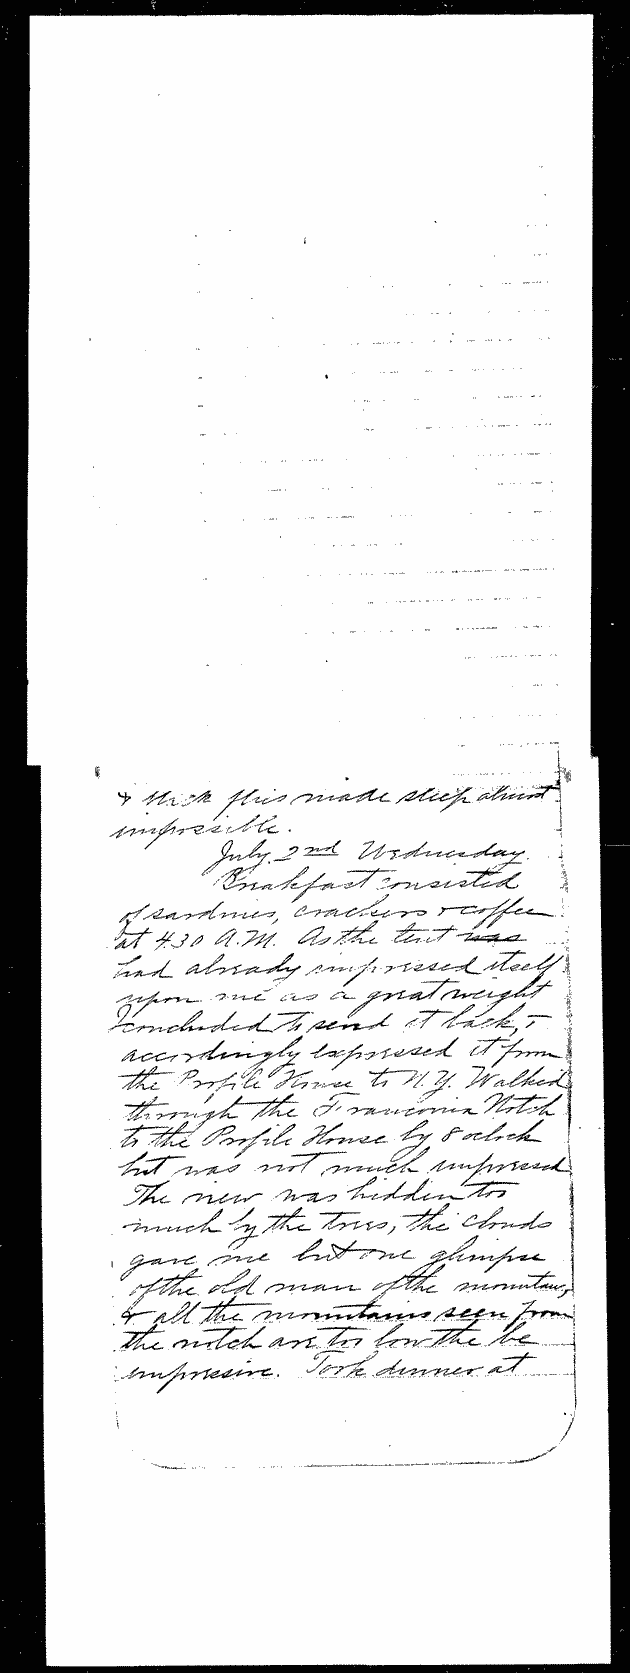 & thick this made sleep almost
impossible.
July 2nd Wednesday.
Breakfast consisted
of sardines, crackers & coffee
at 4.30 A.M. As the tent was
had already impressed itself
upon me as a great weight
I concluded to send it back, &
accordingly expressed it from
the Profile House to N.Y. Walked
through the Franconia Notch
to the Profile House by 8 oclock
but was not much impressed
The view was hidden too
much by the trees, the clouds
gave me but one glimpse
of the old man of the mountain,
& all the mountains seen from
the notch are too low the be
impressive. Took dinner at